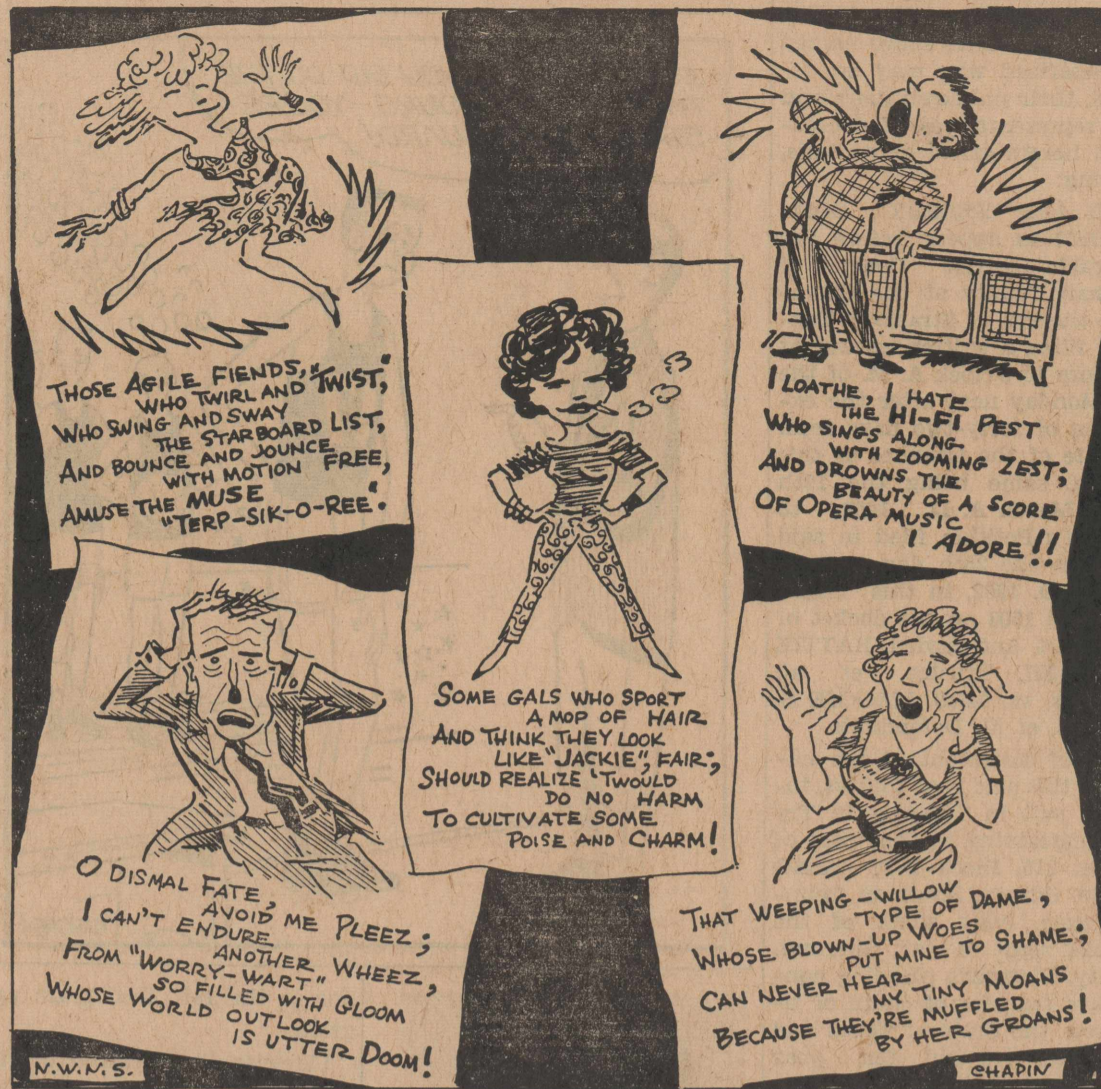 THOSE AGILE FIENDS,
WHO TWIRL AND "TWIST,"
WHO SWING AND SWAY
THE STARBOARD LIST,
AND BOUNCE AND JOUNCE
WITH MOTION FREE,
AMUSE THE MUSE
"TERP-SIK-O-REE".
I LOATHE, I HATE
THE HI-FI PEST
WHO SINGS ALONG
WITH ZOOMING ZEST;
AND DROWNS THE
BEAUTY OF A SCORE
OF OPERA MUSIC
I ADORE!!
SOME GALS WHO SPORT
A MOP OF HAIR
AND THINK THEY LOOK
LIKE "JACKIE", FAIR;
SHOULD REALIZE 'TWOULD
DO NO HARM
TO CULTIVATE SOME
POISE AND CHARM!
O DISMAL FATE,
AVOID ME PLEEZ;
I CAN'T ENDURE
ANOTHER WHEEZ,
FROM "WORRY-WART"
SO FILLED WITH GLOOM
WHOSE WORLD OUTLOOK
IS UTTER DOOM!
THAT WEEPING-WILLOW
TYPE OF DAME,
WHOSE BLOWN-UP WOES
PUT MINE TO SHAME;
CAN NEVER HEAR
MY TINY MOANS
BECAUSE THEY'RE MUFFLED
BY HER GROANS!
N.W.N.S.
CHAPIN